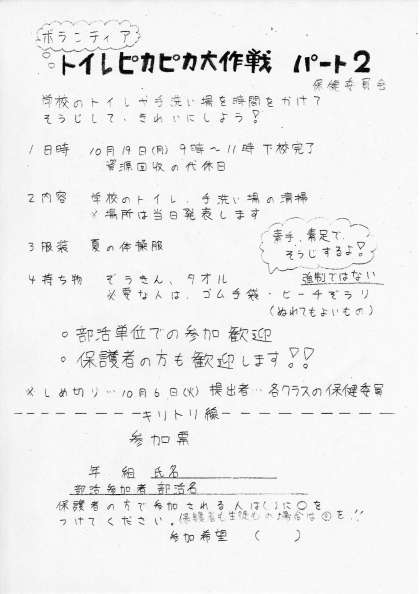 ボランティア
トイレピカピカ大作戦 パート2
保健委員会
学校のトイレや手洗い場を時間をかけて
そうじして、きれいにしよう！
1 日時 10月19日(月) 9時〜11時下校完了
資源回収の代休日
2 内容 学校のトイレ、手洗い場の清掃
※場所は当日発表します
3 服装 夏の体操服
素手、素足で、
そうじするよ！
4 持ち物 ぞうきん、タオル
強制ではない
※愛な人は、ゴム手袋・ビーチぞうり
(ぬれてもよいもの)
○ 部活単位での参加歓迎
○ 保護者の方も歓迎します！！
※しめ切り…10月6日(火) 提出者…各クラスの保健委員
キリトリ線
参加票
年 組 氏名
部活参加者 部活名
保護者の方で参加される人は( )に○を
つけてください。(保護者も生徒もの場合は◎を！！
参加希望 ( )